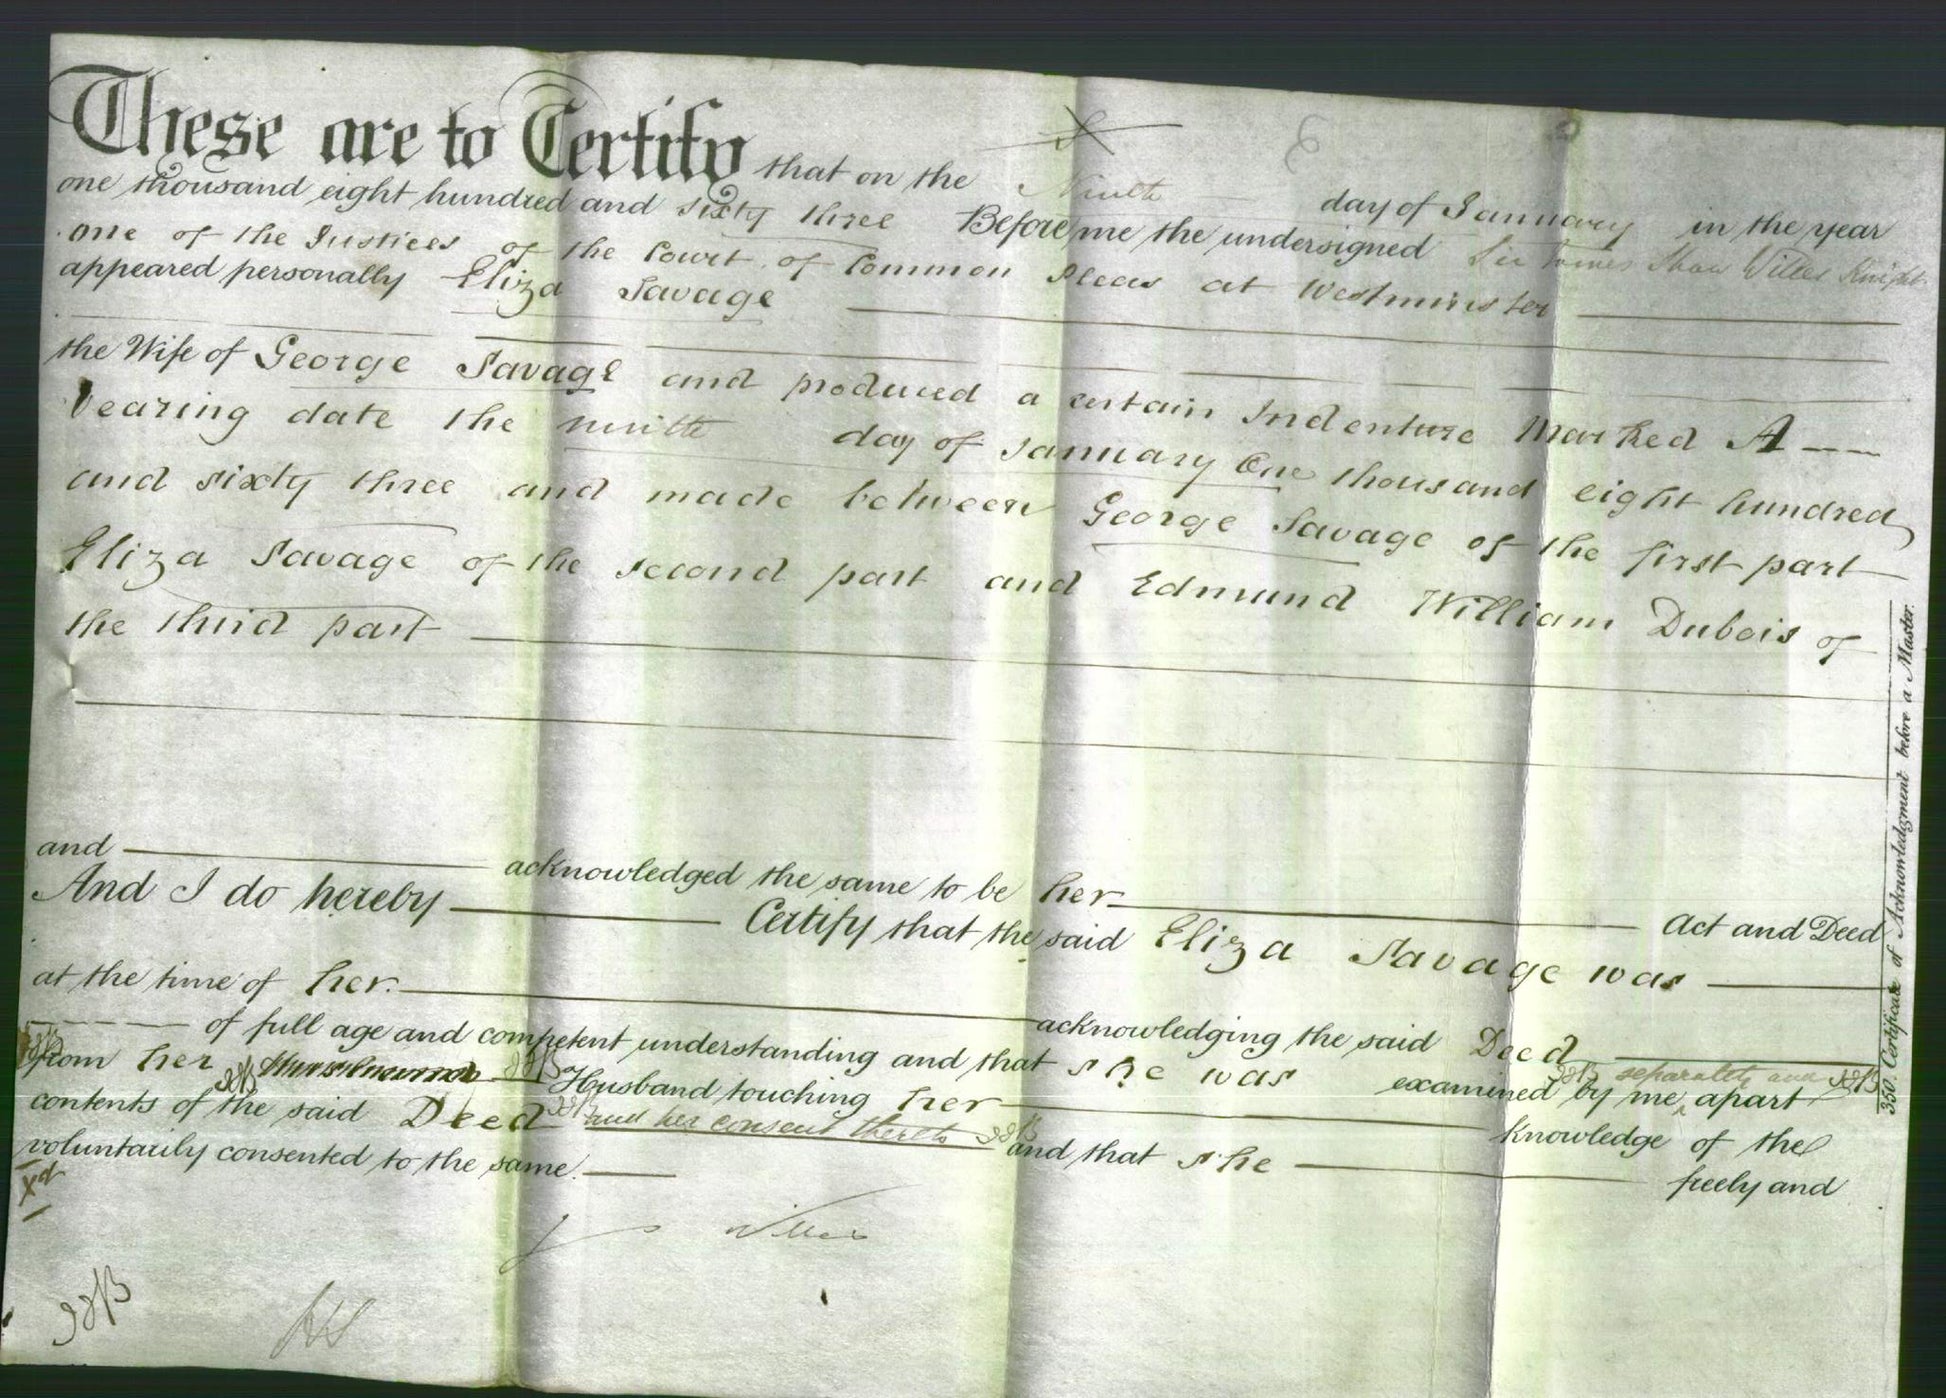 These are to Certify that on the Ninth day of January in the year
one thousand eight hundred and sixty three Before me the undersigned Sir James Shaw Willes Knight
one of the Justices of the Court of Common Pleas at Westminster
appeared personally Eliza Savage
the Wife of George Savage and produced a certain Indenture Marked A
bearing date the ninth day of January One thousand eight hundred
and sixty three and made between George Savage of the first part
Eliza Savage of the second part and Edmund William Dubois of
the third part
and acknowledged the same to be her Act and Deed
And I do hereby Certify that the said Eliza Savage was
at the time of her acknowledging the said Deed
of full age and competent understanding and that she was examined by me separately and apart
from her Husband touching her knowledge of the
contents of the said Deed and her consent thereto and that she freely and
voluntarily consented to the same.
Xd
J Willes
350. Certificate of Acknowledgment before a Master.